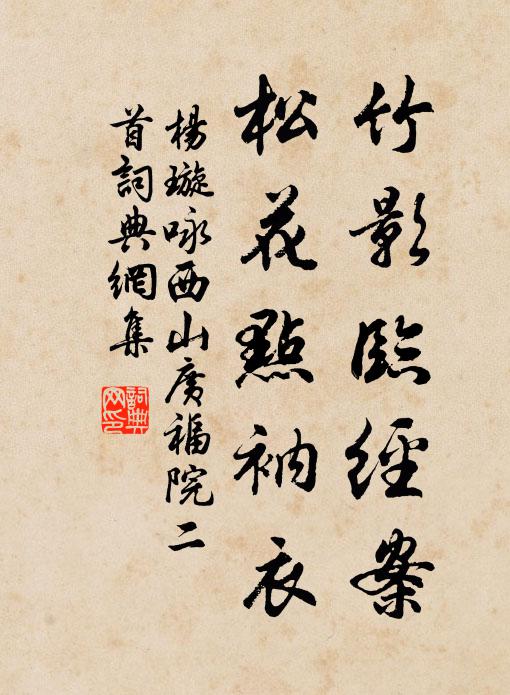 竹影臨經案
松花點衲衣
楊璇咏西山廣福院二
首詞典網集
詞典
网印